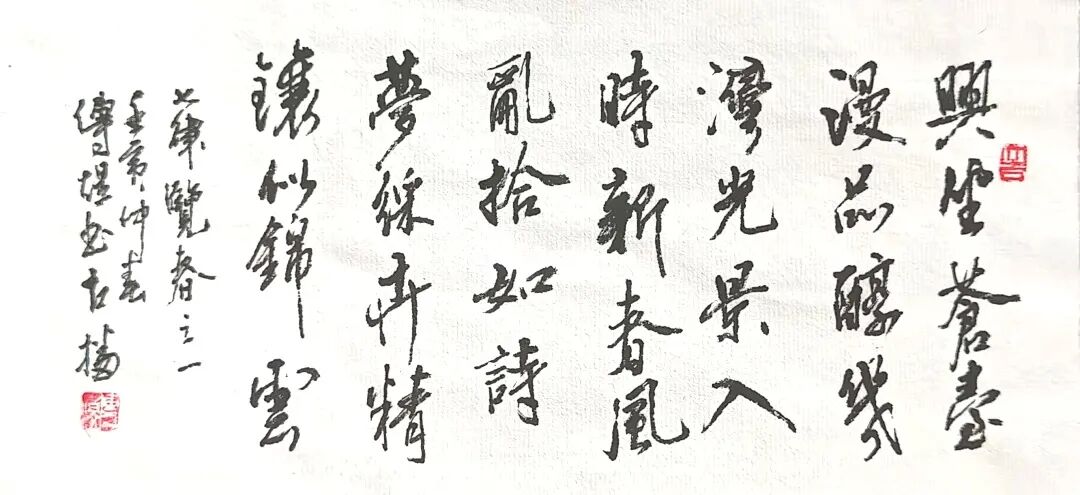 興坐蒼臺
漫品醇幾
灣光景入
時新春風
亂拾如詩
夢綵卉精
鑲似錦雲
七律覽春之一
壬寅仲春
傳堤書於揚